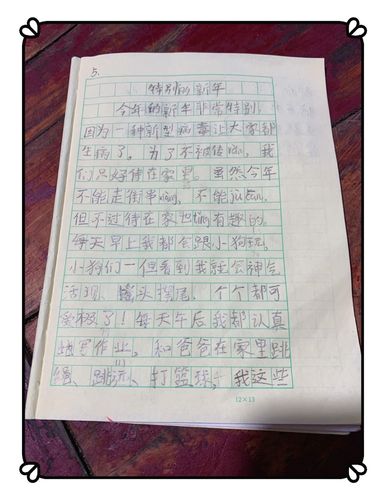 5.
特别的新年
今年的新年非常特别。
因为一种新型病毒让大家都
生病了。为了不被传rǎn，我
们只好待在家里。虽然今年
不能走街串xiàng，不能jù cān，
但不过待在家也tǐng有趣的。
每天早上我都会跟小狗玩，
小狗们一但看到我就会神气
活现、摇头摆尾，个个都可
爱极了！每天午后我都认真
地写作业。和爸爸在家里跳
绳、跳远、打篮球，我这些
12×13